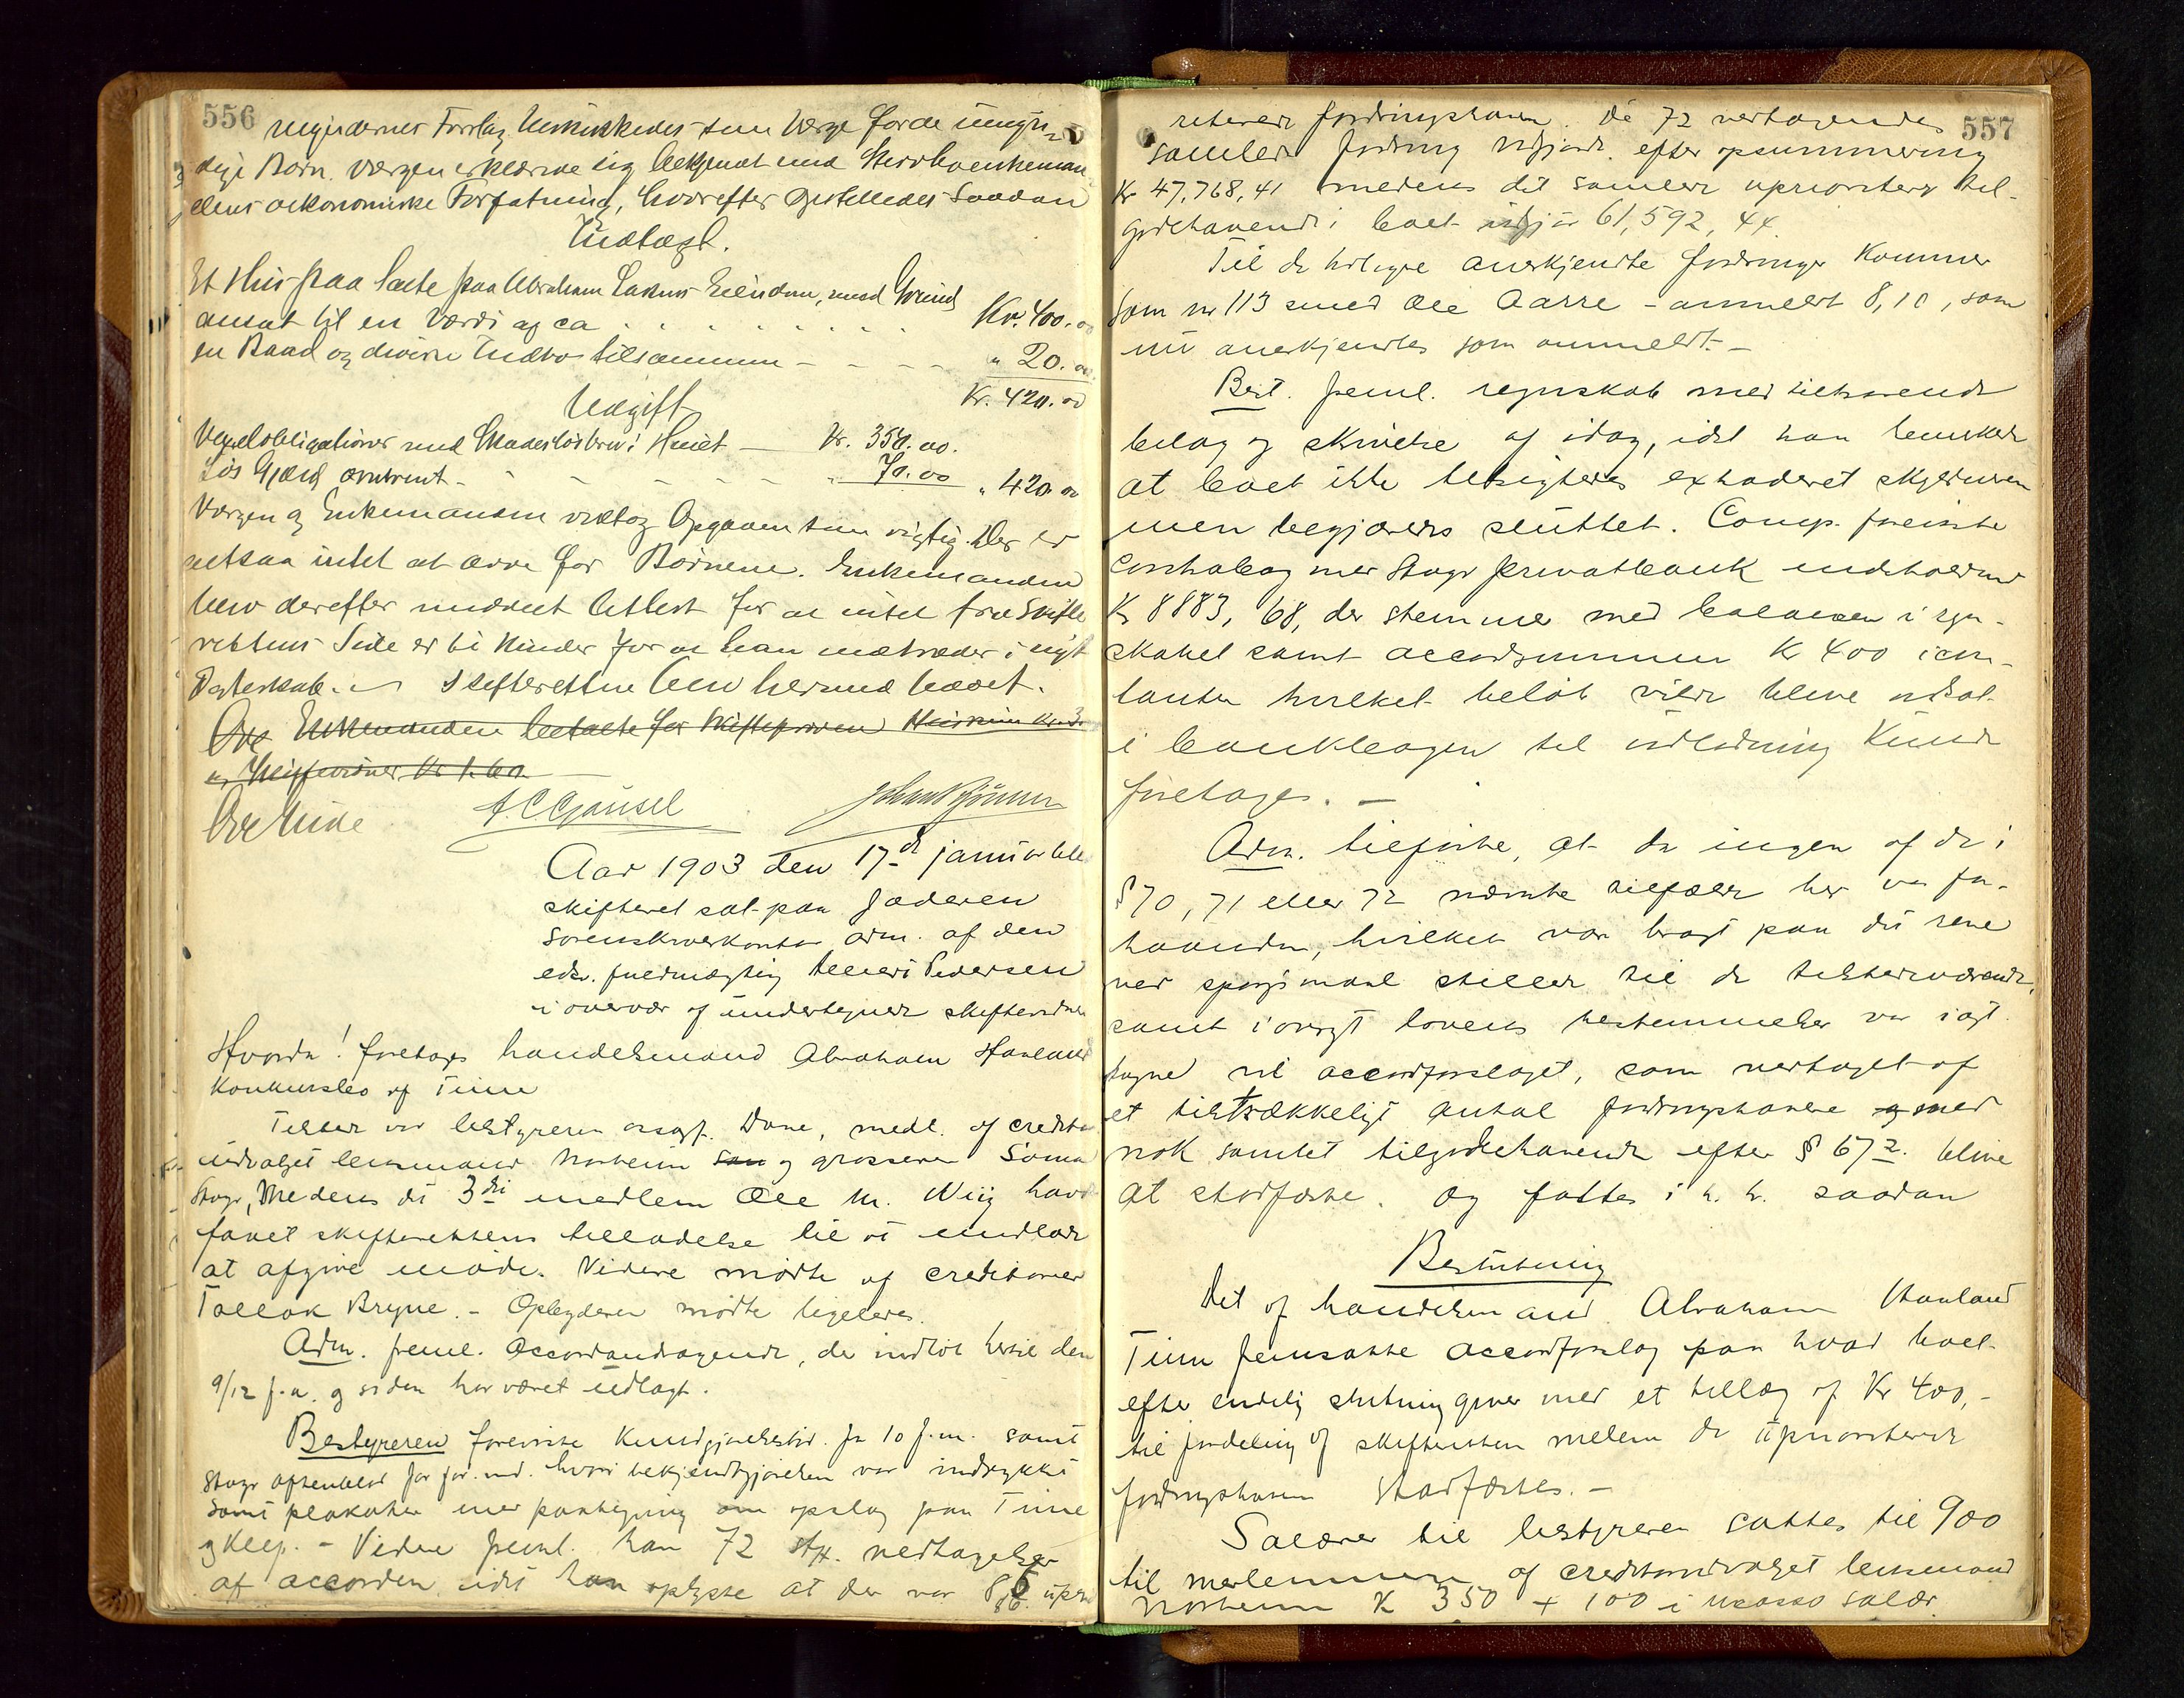 556
myndernes Forslag som Værge for de umyn-
dige Børn. Værgen erklærede sig bekjendt med Stervboenkeman
dens oekonomiske Forfatning, hvorefter opstilledes Saadan
Indtægt.
Et Hus paa Sæte paa Abraham Eiendom, med Grund
ansat til en Værdi af ca . . . . . . . . Kr. 400.00
en Baad og diverse Indbo tilsammen - - - - " 20.00
Kr. 420.00
Udgift
Vexelobligationer med Skadesløsbrev i Huset — Kr. 350.00.
Løs Gjæld omtrent - - - - - - " 70.00 " 420.00
Værgen og Enkemanden vedtog Opgaven som rigtig. Der er
altsaa intet at arve for Børnene. Enkemanden
blev derefter meddelt Attest for at intet fra Skifte
rettens Side er til Hinder for at han indtræder i nyt
Ægteskab. Skifteretten blev hermed hævet.
Enkemanden betalte for Skifteprøven
og Skiftevidner Kr 1.60
A.C. Gjøusel
Aar 1903 den 17de januar blev
skifteret sat paa Jæderen
sorenskriverkontor adm. af den
eds. fuldmægtig Pedersen
i overvær af undertegnede skiftevidner
Hvorda! foretoges handelsmand Abraham Haaland
Konkursbo af Time
Tilstede var bestyreren ovsagf. Dane, medl. af creditor
udvalget lensmand Norheim san og grosserer Sømme
Stavgr, Medens det 3die medlem Ole M. Wiig havde
faaet skifterettens tilladelse til at undlade
at afgive møde. Videre mødte af creditorer
Tollak Bryne. - Opbyderen mødte ligeledes.
Adm. freml. Accordandragende, der indløb hertil den
9/12 f.a. og siden har været udlagt.
Bestyreren foreviste Kundgjørelsestid. fr 10 f.m. samt
Stavgr aftenblad for før. md. hvori bekjendtgjørelsen var indrykket
samt plakater med paategning om opslag paa Time
og Klep. - Videre freml. han 72 stk. vedtagelser
af accorden idet han oplyste at der var 86 uprio
86.
557
riterede fordringshavere. De 72 vedtagendes
samlede fordring udgjorde efter opsummering
Kr 47,768,41 medens det samlede upriorterte til-
godehavende i boet udgjør 61,592,44
Til de tidligere anerkjendte fordringer kommer
som nr 113 smed Ole Aarre - anmeldt 8,10, som
nu anerkjendtes som anmeldt. -
Best. freml. regnskab med tilhørende
bilag og skrivelse af idag, idet han bemærkede
at boet ikke besigtedes extraderet skyldneren
men begjæres sluttet. Comp. foreviste
Contrabog med Stavgr Privatbank indeholdende
Kr 8883,68, der stemmer med balancen i regn-
skabet samt accordsummen Kr 400 i con-
tanter hvilket beløb vilde blive indsat
i bankbogen til udlodning kunde
foretages. -
Adm. tilførte, at da ingen af de i
§ 70, 71 eller 72 nævnte tilfælde her var for-
haanden, hvilket var bragt paa det rene
ved spørgsmaal stillede til de tilstedeværende,
samt i øvrigt lovens bestemmelser var iagt-
tagne vil accordforslaget, som vedtaget af
et tilstrækkeligt antal fordringshavere og med
nok samlet tilgodehavende efter § 67 2. blive
at stadfæste. Og fattes i h. h. saadan
Beslutning
Det af handelsmand Abraham Haaland
Time fremsatte accordforslag paa hvad boet
efter endelig slutning giver med et tillæg af Kr 400,-
til fordeling af skifteretten mellem de uprioriterede
fordringshavere stadfæstes. -
Salærer til bestyreren sattes til 900
til medlemmerne af creditorudvalget lensmand
Norheim K 350 + 100 i incasso salær.